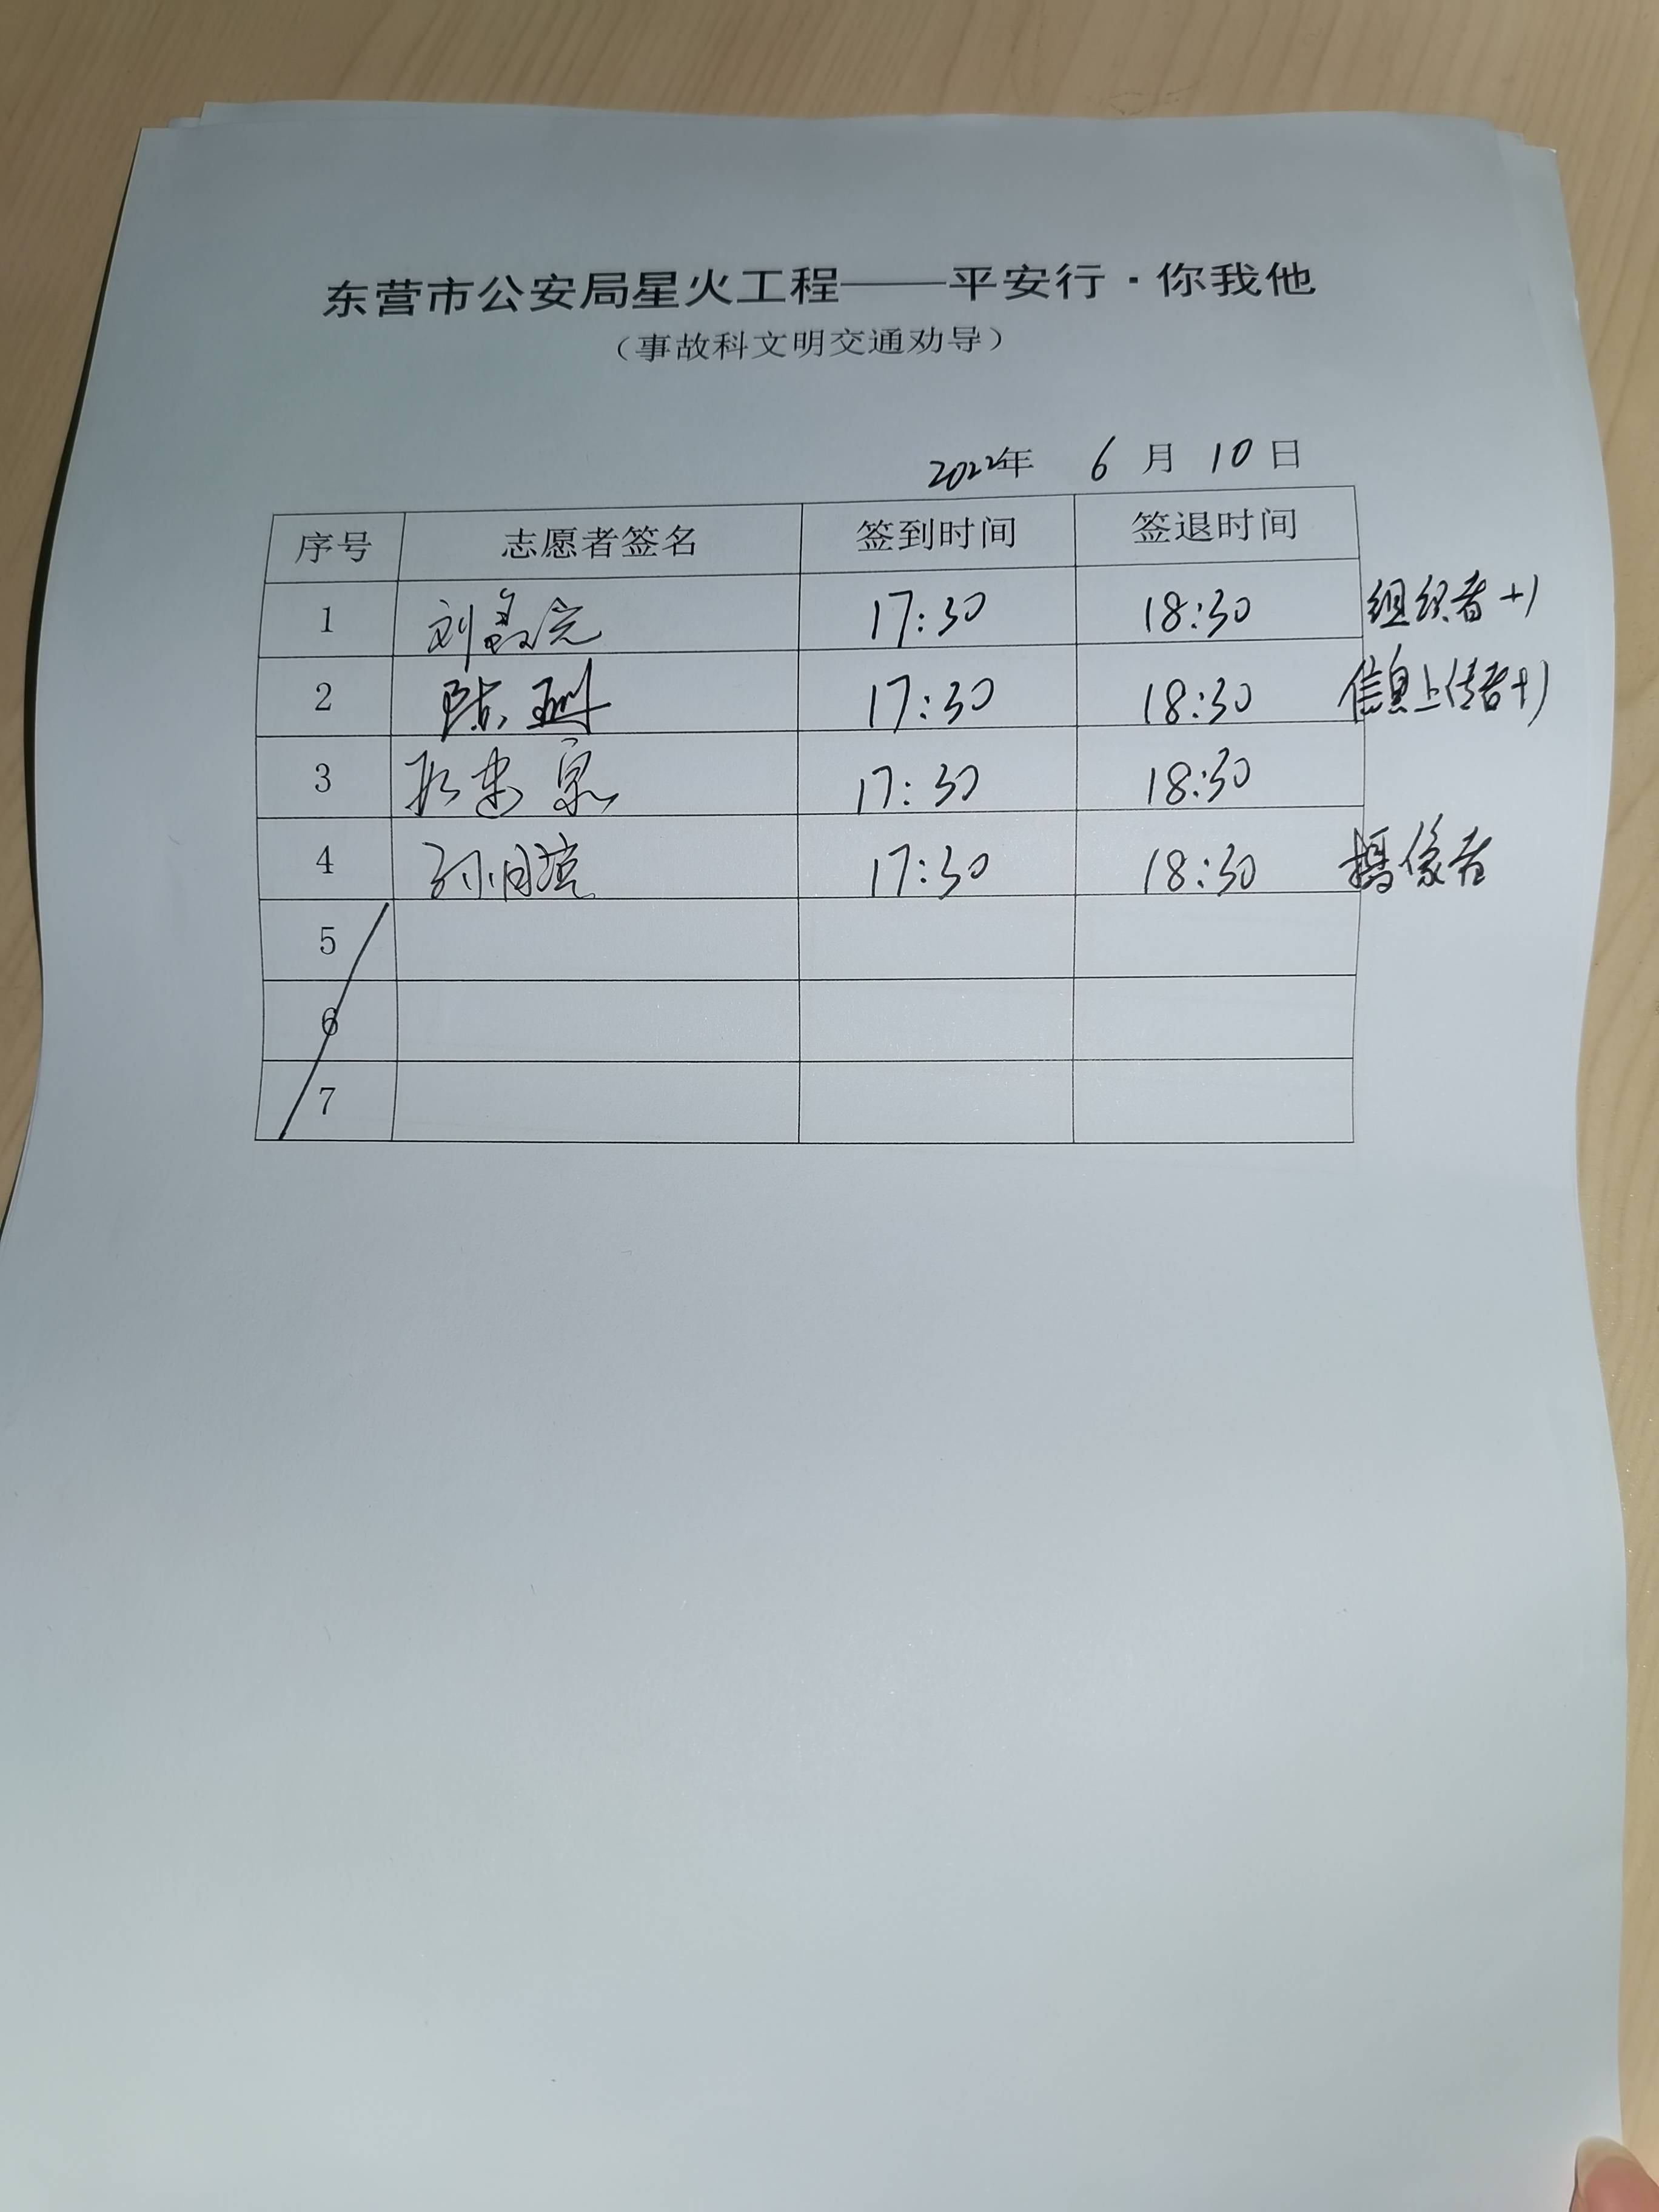 东营市公安局星火工程——平安行·你我他
（事故科文明交通劝导）
2022年 6 月 10 日
序号 志愿者签名 签到时间 签退时间
1 刘 17:30 18:30 组织者+1
2 陈珊 17:30 18:30 信息上传者+1
3 17:30 18:30
4 孙 17:30 18:30 摄像者
5
6
7